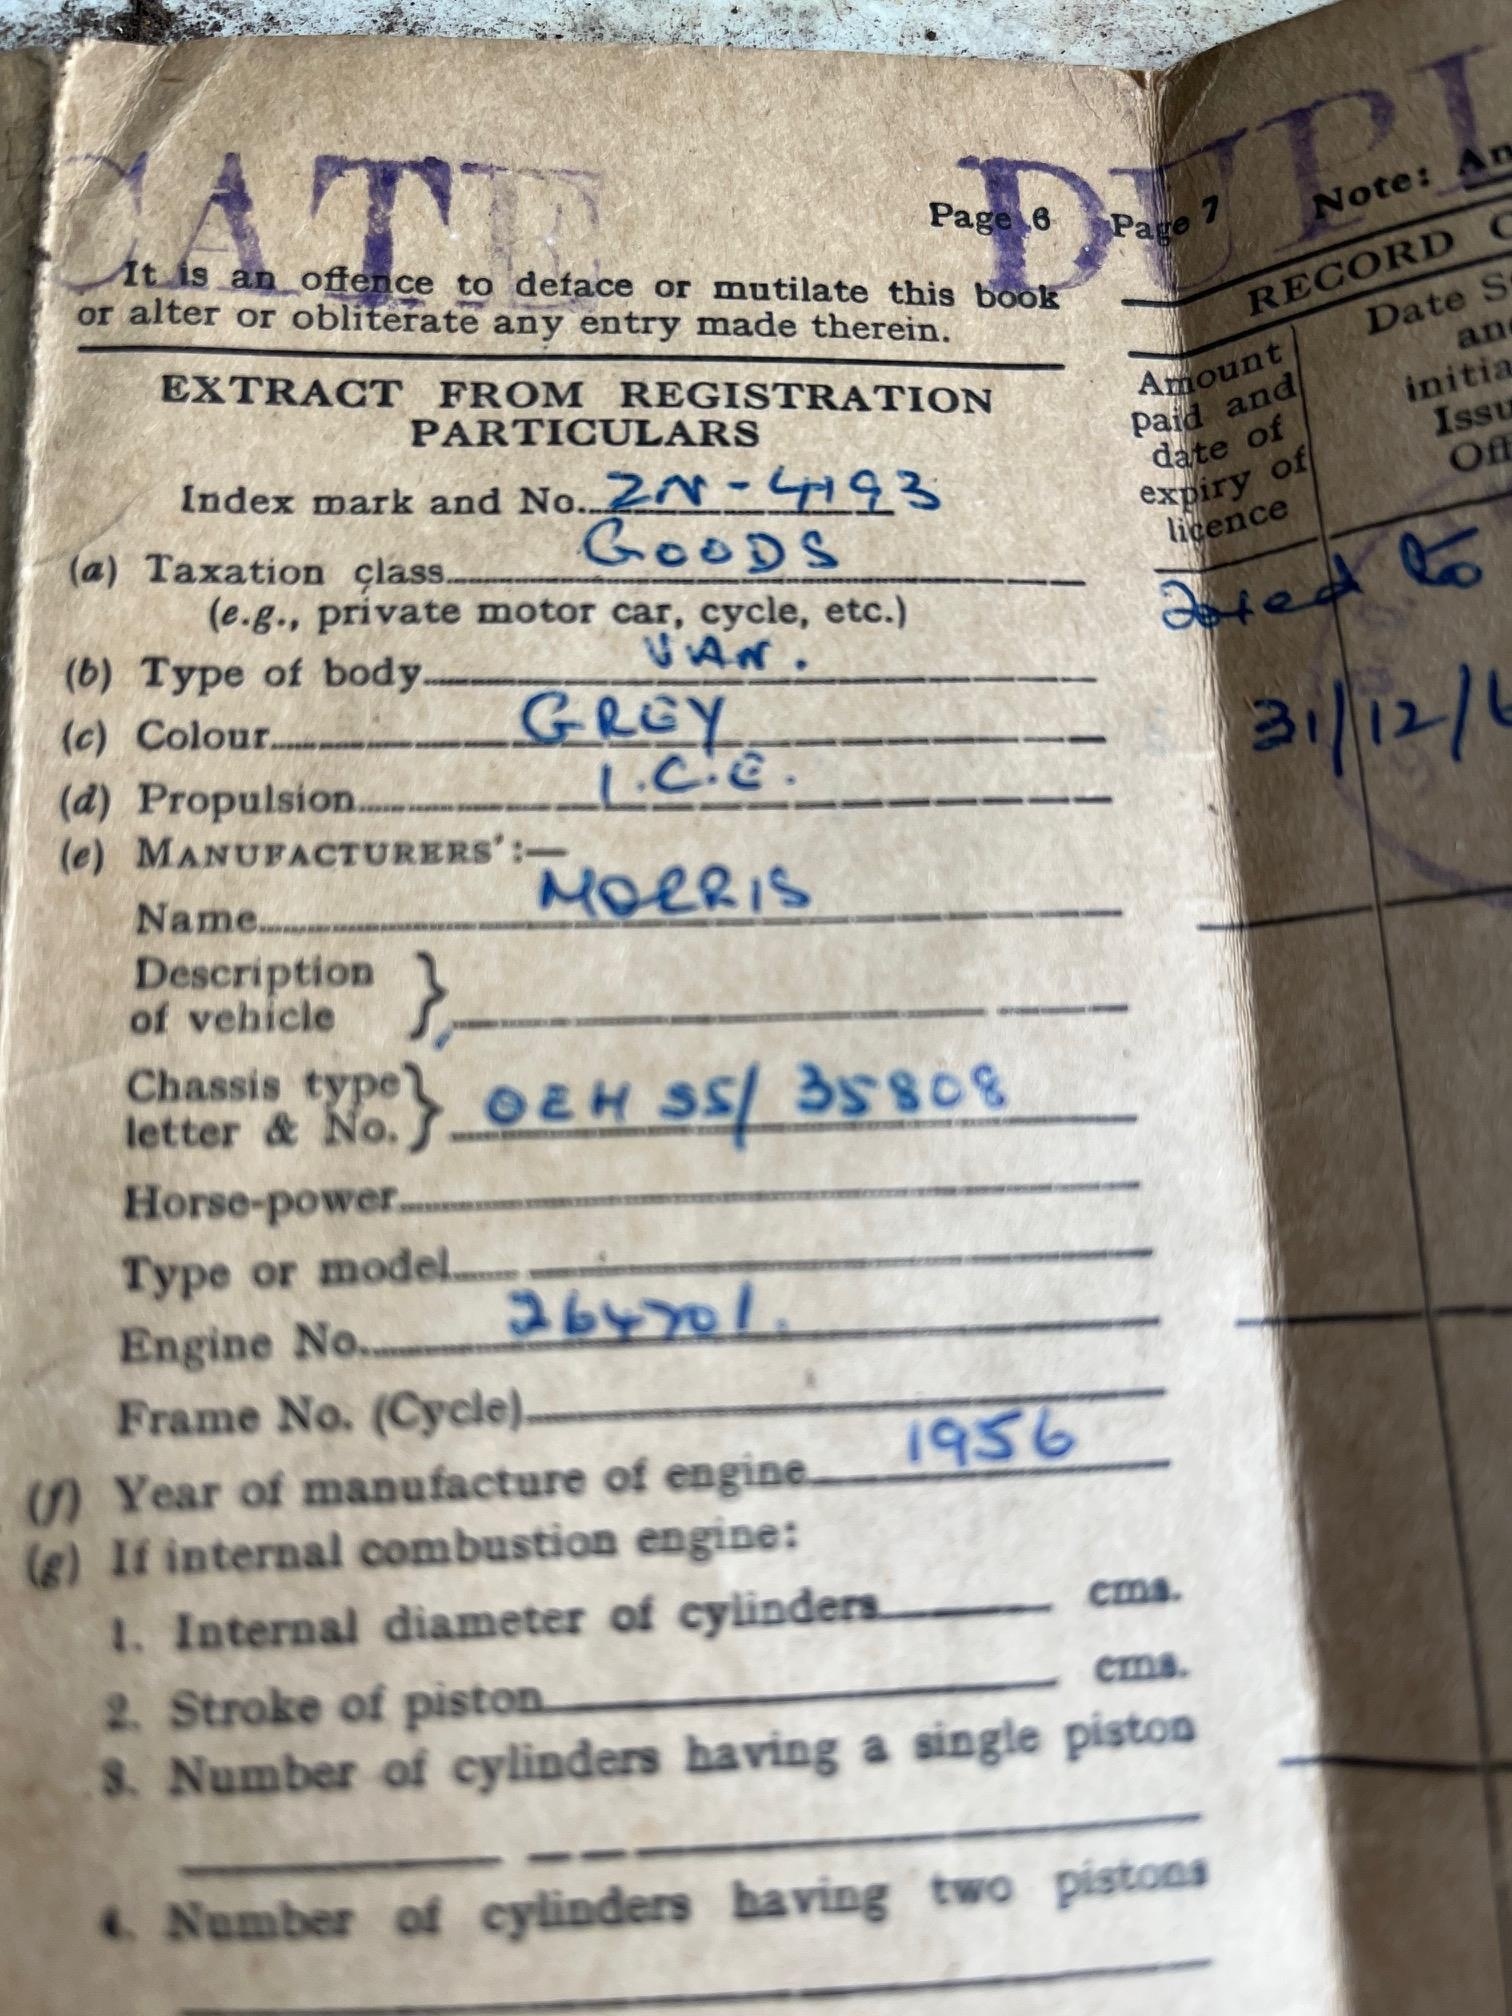 CATE DUPLI
Page 6
It is an offence to deface or mutilate this book
or alter or obliterate any entry made therein.
EXTRACT FROM REGISTRATION
PARTICULARS
Index mark and No. ZN-4193
(a) Taxation class GOODS
(e.g., private motor car, cycle, etc.)
(b) Type of body VAN.
(c) Colour GREY
(d) Propulsion I.C.E.
(e) MANUFACTURERS':—
Name MORRIS
Description
of vehicle }
Chassis type
letter & No. } OEH SS/ 35808
Horse-power
Type or model
Engine No. 264701.
Frame No. (Cycle)
(f) Year of manufacture of engine 1956
(g) If internal combustion engine:
1. Internal diameter of cylinders cms.
2. Stroke of piston cms.
3. Number of cylinders having a single piston
4. Number of cylinders having two pistons
Page 7
Note: An
RECORD
Amount
paid and
date of
expiry of
licence
Date
initia
Issu
Off
to
31/12/